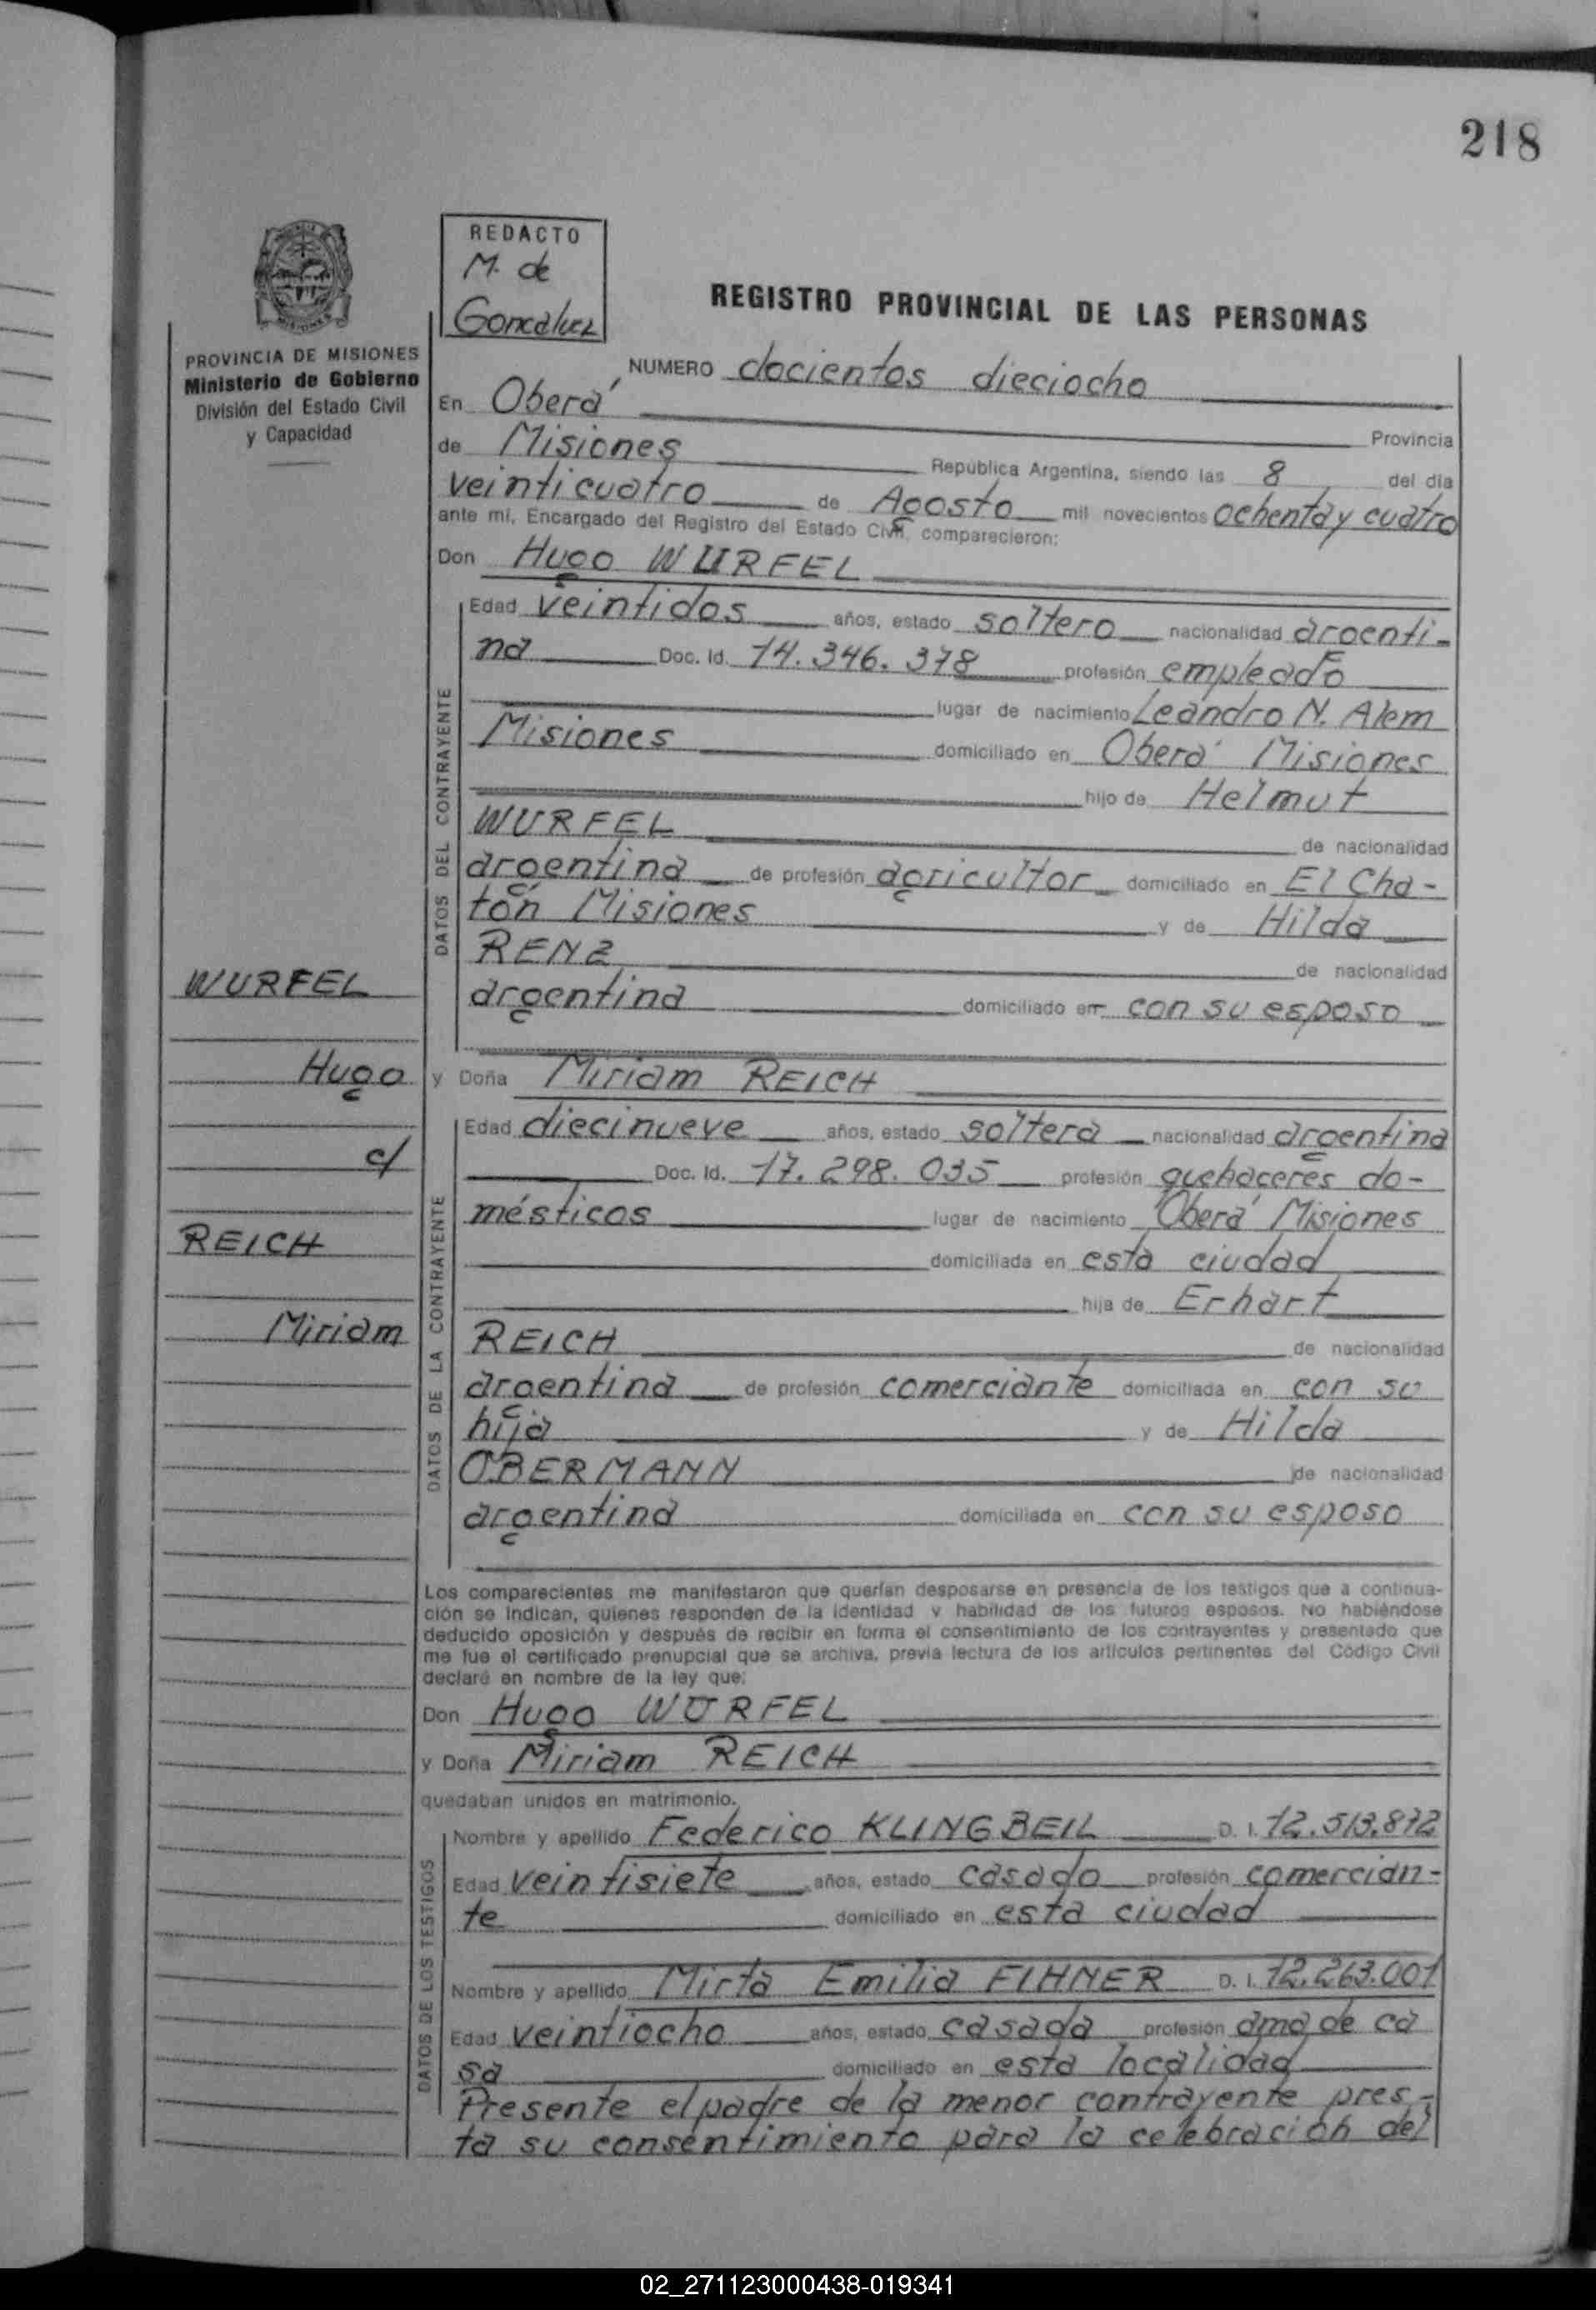 218
REDACTO
M. de
Goncalvez
PROVINCIA DE MISIONES
Ministerio de Gobierno
División del Estado Civil
y Capacidad
REGISTRO PROVINCIAL DE LAS PERSONAS
NUMERO docientos dieciocho
En Oberá Provincia
de Misiones República Argentina, siendo las 8 del día
veinticuatro de Agosto mil novecientos ochenta y cuatro
ante mí, Encargado del Registro del Estado Civil, comparecieron:
Don Hugo WURFEL
DATOS DEL CONTRAYENTE
Edad veintidos años, estado soltero nacionalidad argenti-
na Doc. Id. 14.346.378 profesión empleado
lugar de nacimiento Leandro N. Alem
Misiones domiciliado en Oberá Misiones
hijo de Helmut
WURFEL de nacionalidad
argentina de profesión agricultor domiciliado en El Cha-
tón Misiones y de Hilda
RENZ de nacionalidad
argentina domiciliado en con su esposo
WURFEL
Hugo
c/
REICH
Miriam
y Doña Miriam REICH
DATOS DE LA CONTRAYENTE
Edad diecinueve años, estado soltera nacionalidad argentina
Doc. Id. 17.298.035 profesión quehaceres do-
mésticos lugar de nacimiento Oberá Misiones
domiciliada en esta ciudad
hija de Erhart
REICH de nacionalidad
argentina de profesión comerciante domiciliada en con su
hija y de Hilda
OBERMANN de nacionalidad
argentina domiciliada en con su esposo
Los comparecientes me manifestaron que querían desposarse en presencia de los testigos que a continua-
ción se indican, quienes responden de la identidad y habilidad de los futuros esposos. No habiéndose
deducido oposición y después de recibir en forma el consentimiento de los contrayentes y presentado que
me fue el certificado prenupcial que se archiva, previa lectura de los artículos pertinentes del Código Civil
declaré en nombre de la ley que:
Don Hugo WURFEL
y Doña Miriam REICH
quedaban unidos en matrimonio.
DATOS DE LOS TESTIGOS
Nombre y apellido Federico KLINGBEIL D. I. 12.513.872
Edad veintisiete años, estado casado profesión comercian-
te domiciliado en esta ciudad
Nombre y apellido Mirta Emilia FIHNER D. I. 12.263.001
Edad veintiocho años, estado casada profesión ama de ca
sa domiciliado en esta localidad
Presente el padre de la menor contrayente pres-
ta su consentimiento para la celebración del
02_271123000438-019341